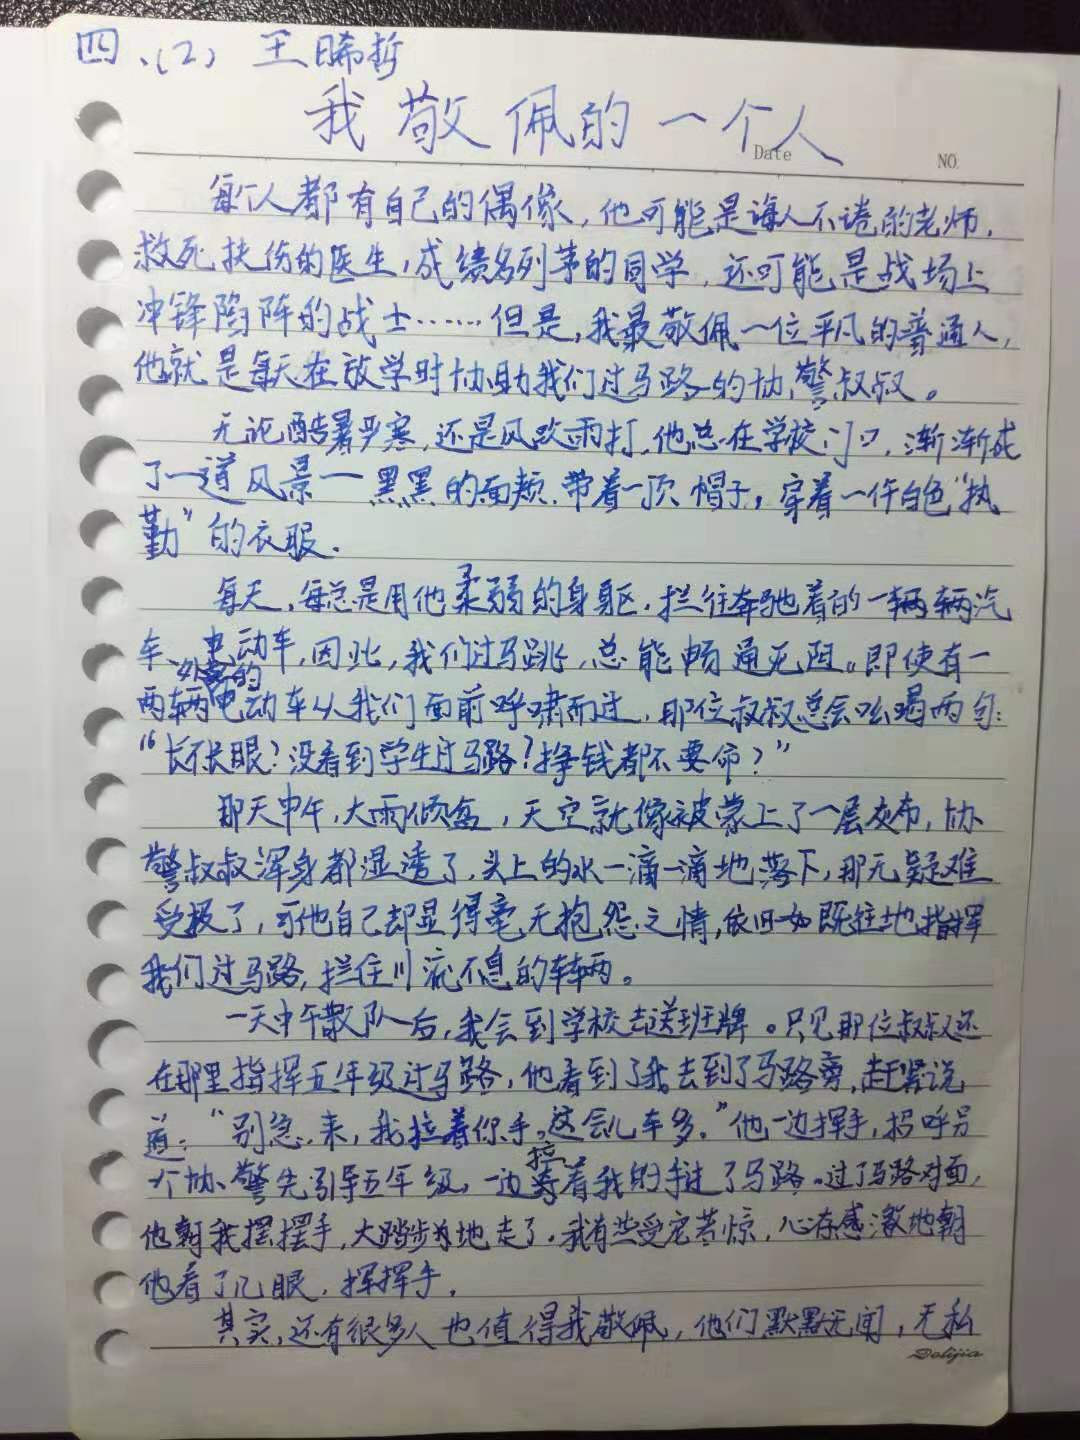 四、(2) 王晞哲
我敬佩的一个人
Date NO.
每个人都有自己的偶像，他可能是诲人不倦的老师，
救死扶伤的医生，成绩名列茅的同学，还可能是战场上
冲锋陷阵的战士……但是，我最敬佩一位平凡的普通人，
他就是每天在放学时协助我们过马路的协警叔叔。
无论酷暑严寒，还是风吹雨打，他总在学校门口，渐渐成
了一道风景一黑黑的面颊，带着一顶帽子，穿着一件白色“执
勤”的衣服．
每天，每总是用他柔弱的身躯，拦住奔驰着的一辆辆汽
车、电动车，因此，我们过马路，总能畅通无阻。即使有一
两辆外卖的电动车从我们面前呼啸而过，那位叔叔总会吆喝两句：
“长不长眼？没看到学生过马路？挣钱都不要命？”
那天中午，大雨倾盆，天空就像被蒙上了一层灰布，协
警叔叔浑身都湿透了，头上的水一滴一滴地落下，那无疑难
受极了，可他自己却显得毫无抱怨之情，依旧一如既往地指挥
我们过马路，拦住川流不息的车辆。
一天中午散队后，我会到学校去送班牌。只见那位叔叔还
在那里指挥五年级过马路，他看到了我去到了马路旁，赶紧说
道：“别急，来，我拉着你手，这会儿车多，”他一边挥手，招呼另
个协警先引导五年级，一边拉着我的手过了马路。过了马路对面，
他朝我摆摆手，大踏步为地走了．我有些受宠若惊，心存感激地朝
他看了几眼，挥挥手．
其实，还有很多人也值得我敬佩，他们默默无闻，无私
Dolijia